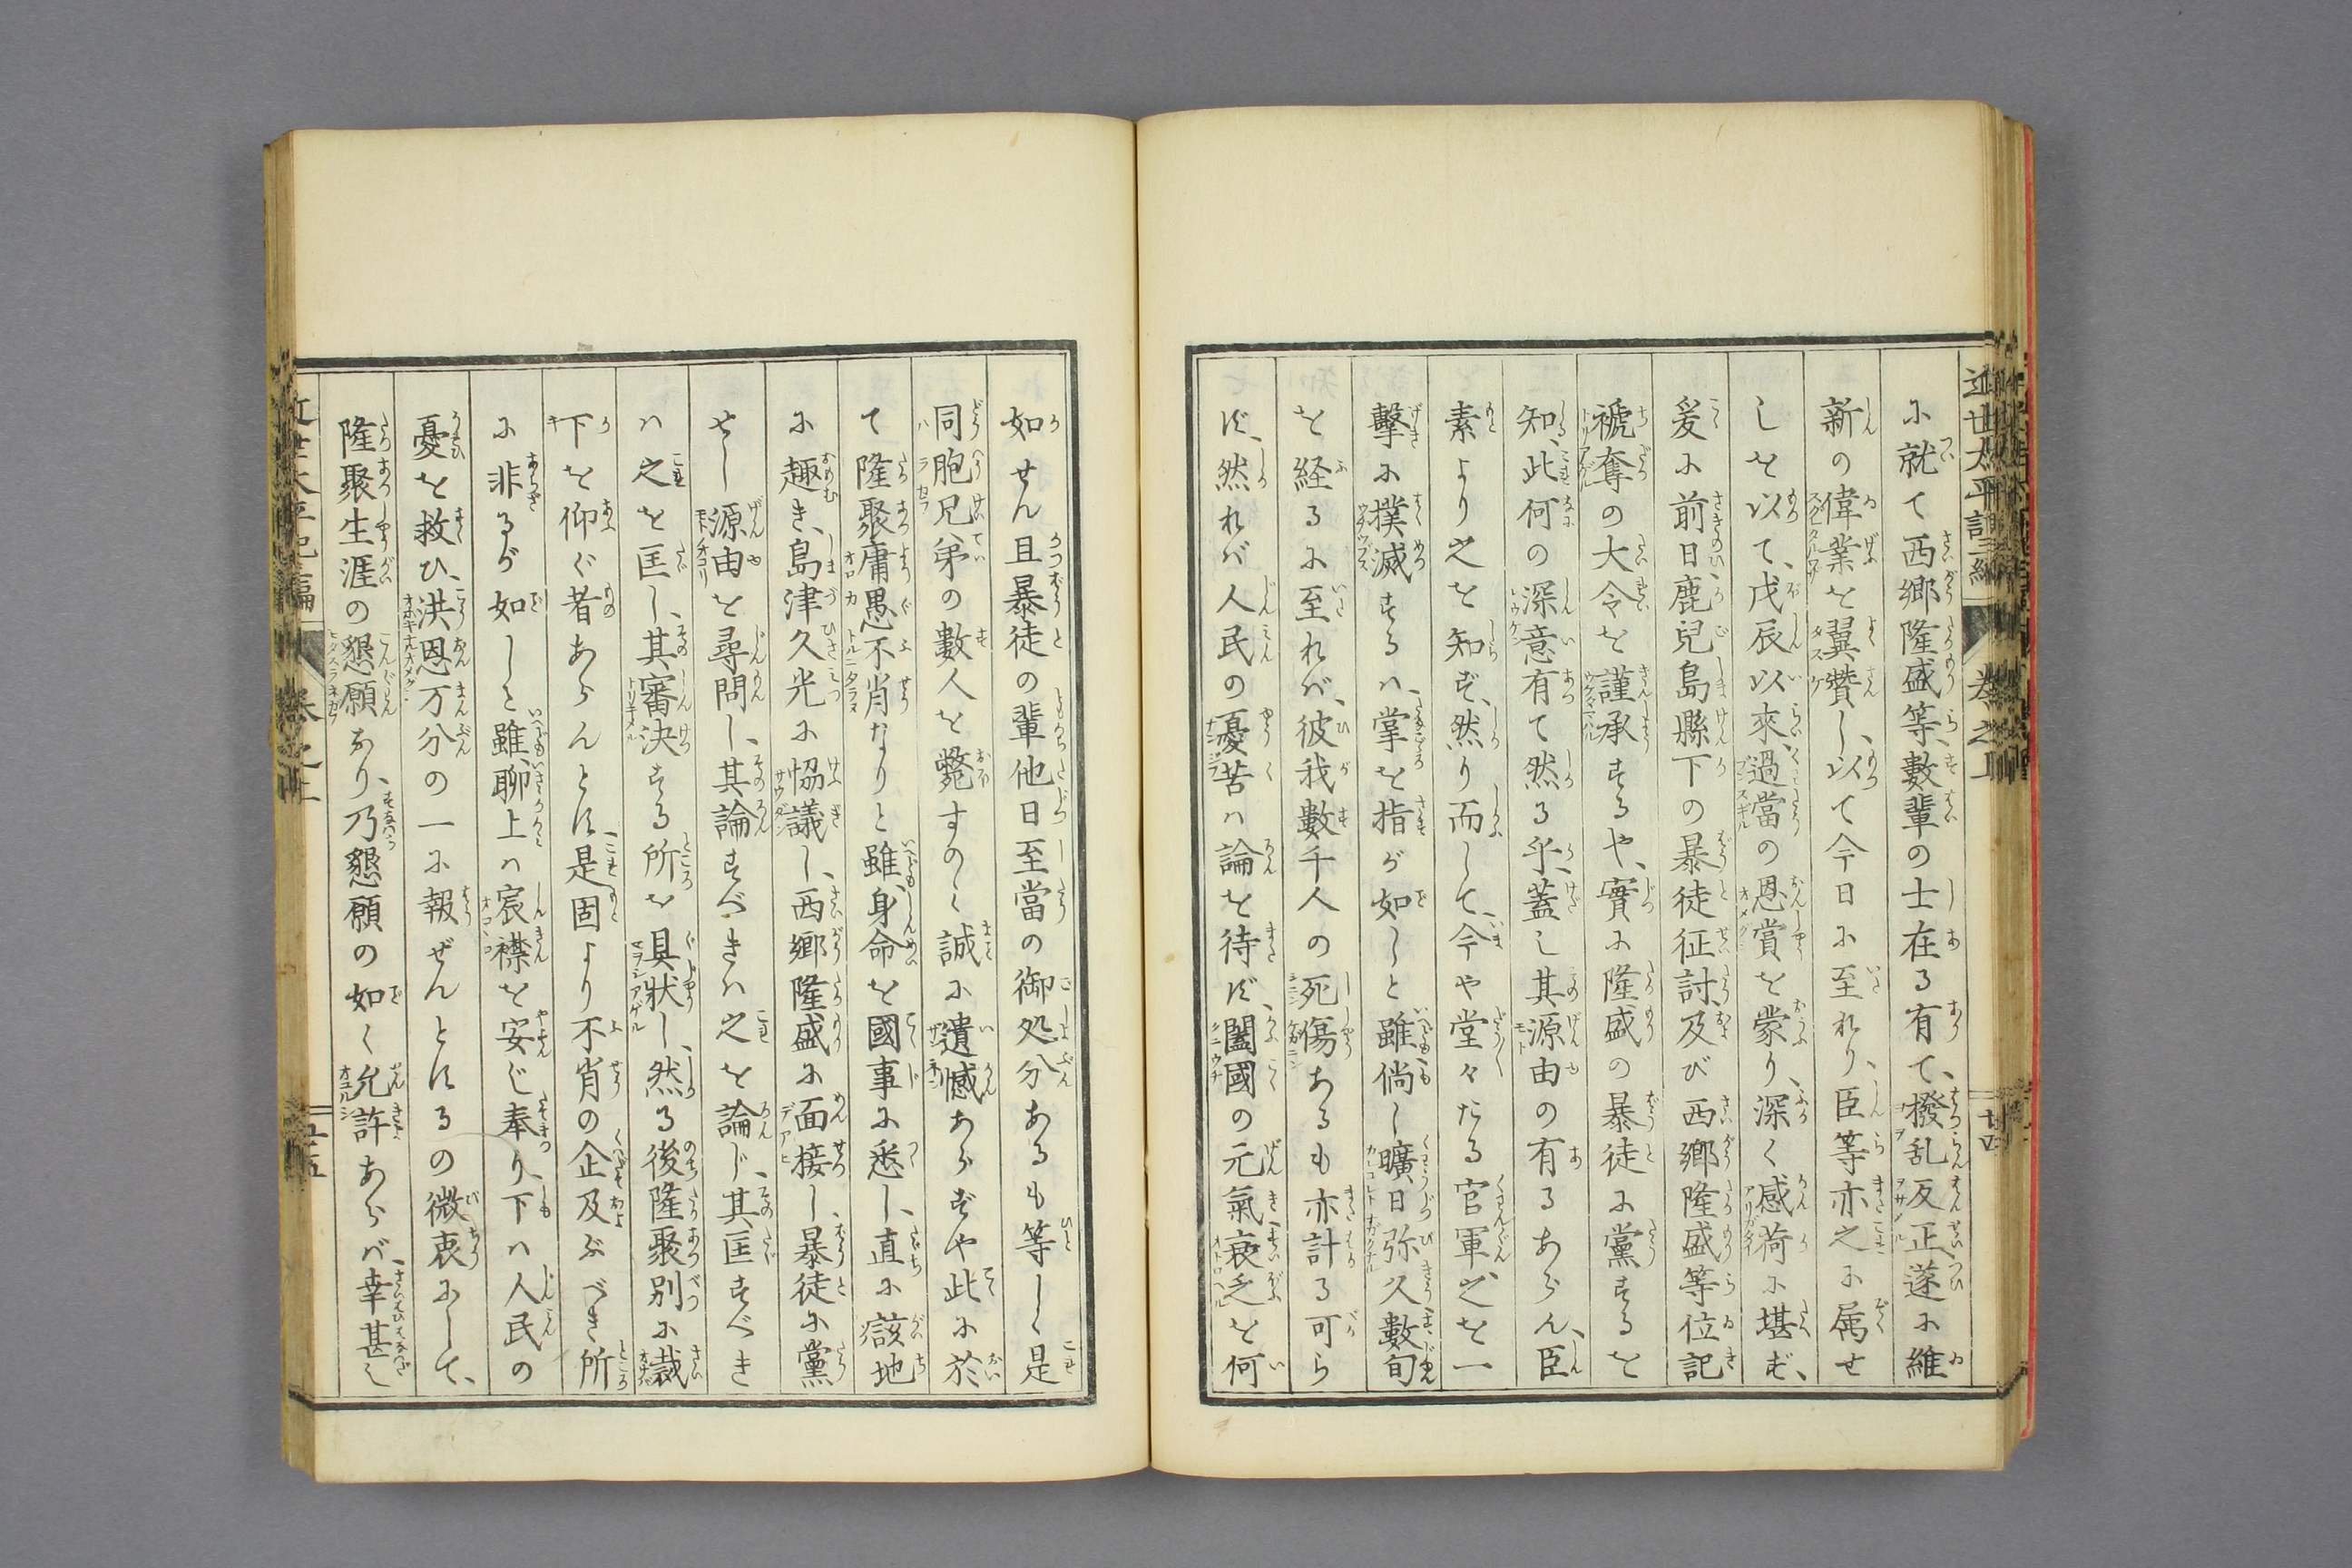 近世太平記二編 巻之上
に就て西郷隆盛等、數輩の士在る有て、撥乱反正遂に維
新の偉業を翼賛し、以て今日に至れり、臣等亦之に属せ
しを以て、戊辰以來、過當の恩賞を蒙り、深く感荷に堪ず、
爰に前日鹿兒島縣下の暴徒征討、及び西郷隆盛等位記
褫奪の大令を謹承するや、實に隆盛の暴徒に黨するを
知、此何の深意有て然る乎、蓋し其源由の有るあらん、臣
素より之を知ず、然り而して、今や堂々たる官軍、之を一
擊に撲滅するハ、掌を指が如しと雖、尚し曠日弥久數旬
を経るに至れバ、彼我數千人の死傷あるも亦計る可ら
ず、然れバ人民の憂苦ハ論を待ず、闔國の元氣衰乏を何
如せん且暴徒の輩他日至當の御処分あるも等しく是
同胞兄弟の數人を斃すのミ誠に遺憾あらずや此に於
て隆聚庸愚不肖なりと雖、身命を國事に悉し、直に該地
に趣き、島津久光に恊議し、西郷隆盛に面接し、暴徒に黨
せし源由を尋問し、其論ずべきハ之を論じ、其匡すべき
ハ之を匡し、其審決する所を具状し、然る後隆聚別に裁
下を仰ぐ者あらんとす、是固より不肖の企及ぶべき所
に非るが如しと雖、聊上ハ宸襟を安じ奉り、下ハ人民の
憂を救ひ、洪恩万分の一に報ぜんとするの微衷にして、
隆聚生涯の懇願なり、乃懇願の如く允許あらバ、幸甚し